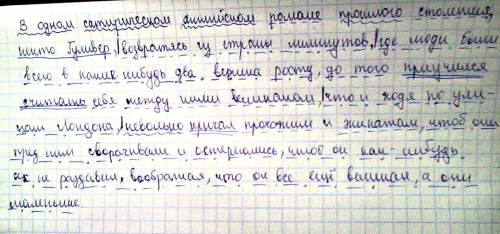 В одном сатирическом английском романе прошлого столетия,
некто Гулливер, возвратясь из страны лилипутов, где люди были
всего в какие-нибудь два вершка росту, до того приучился
считать себя между ними великаном, что и ходя по ули-
цам Лондона, невольно кричал прохожим и экипажам, чтоб они
пред ним сворачивали и остерегались, чтоб он как-нибудь
их не раздавил, воображая, что он всё ещё великан, а они
маленькие.